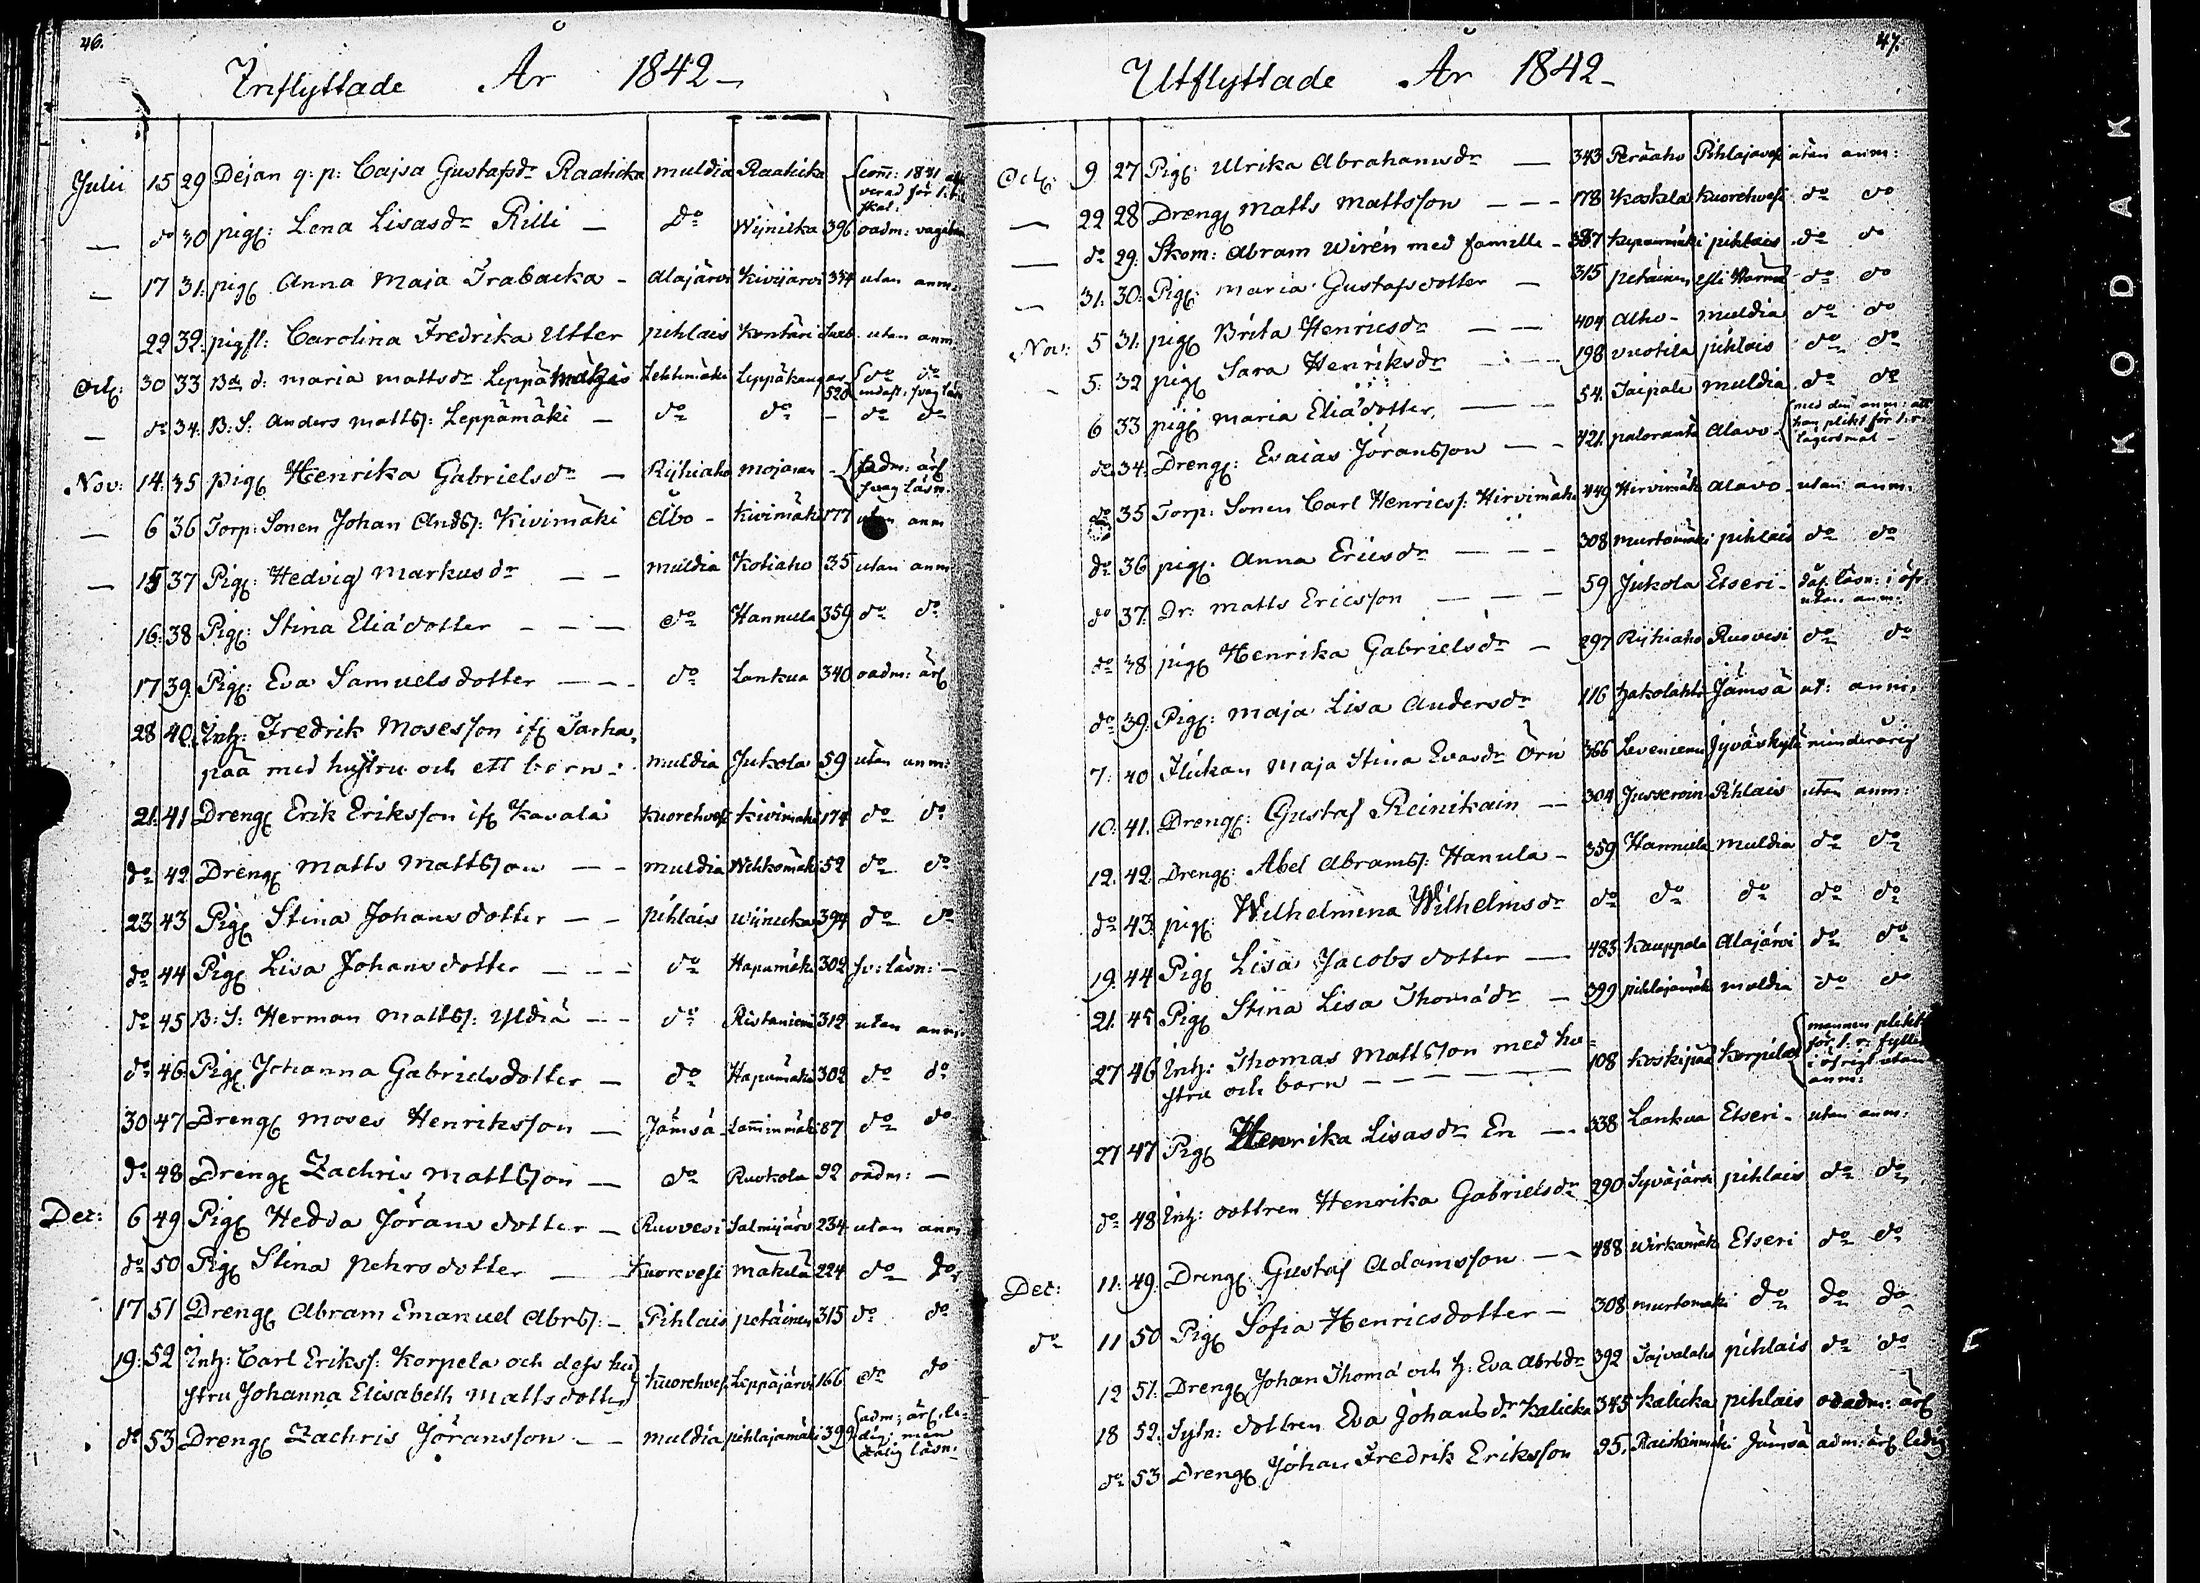 46.
Inflyttade År 1842
Julii 15 29 Dejan q: p: Cajsa Gustafsdr Raaticka muldia Raaticka
— do 30 pigg: Lena Lisasdr Rilli — do Wijnicka 396 oadm:
— 17 31. pigg Anna Maja Trabacka - Alajärvi Kivijärvi 334 utan anm:
22 32. pigfl: Carolina Fredrika Utter pihlais Kontäri utan anm.
Oct: 30 33 Bd d: maria mattsdr Lehtimäki Leppäkangas 520 do do
— do 34. B: S: Anders matts: Leppämäki — do do - do do
Nov: 14. 35 pigg Henrika Gabrielsdr — Rijhiaho svag läsn:
— 6 36 Torp: Sonen Johan Ands: Kivimäki Åbo - Kivimäki 177 utan anm
— 15 37 Pigg: Hedvig Markusdr — — muldia Kotiaho 35 utan anm
16. 38 Pigg: Stina Eliædotter — — — do Hannula 359 do do
17 39. Pigg: Eva Samuelsdotter — — - do Lankua 340 oadm: ärl
28 40. Inh: Fredrik Mosesson ifr Sarha-
pää med hustru och ett barn : muldia Jukola 59 utan anm:
21. 41 Dreng Erik Eriksson ifr Kavala Kuorehvesi Kivimäki 174 do do
do 42. Dreng Matts Mattsson — - muldia Wehkomäki 52 do do
23 43 Pigg Stina Johansdotter — — pihlais Wijnicka 394 do do
do 44 Pigg Lisa Johansdotter — — — do Hapamäki 302 sv: läsn: —
do 45 B: S: Herman Matts: Yldiä — — do Ristaniemi 312 utan anm:
do 46. Pigg Johanna Gabrielsdotter — do Hapamäki 302 do do
30 47 Dreng Moses Henriksson — Jämsä 87 do do
do 48 Dreng Zachris Mattsson — do Ruokola 92 oadm: —
Dec: 6 49 Pigg Hedda Jöransdotter — Ruovesi Salmijärvi 234 utan anm
do 50 Pigg Stina Pehrsdotter — Kuorevesi Mäkelä 224 do do
17 51 Dreng Abram Emanuel Abrs: — Pihlais petäinen 315 do do
19. 52 Inh: Carl Eriks: Korpela och dess hu-
stru Johanna Elisabeth Mattsdotter Kuorehvesi Leppäjärvi 166 do do
do 53 Dreng Zachris Jöransson — — muldia pihlajamäki 399 adm: ärl. le-
dig; men
dålig läsn:
47.
Utflyttade År 1842
Oct: 9. 27 Pigg: Ulrika Abrahamsdr — 343 Peräaho Pihlajavesi utan anm:
— 22 28 Dreng Matts Mattsson — — - 178 Koskela Kuorehvesi do do
— do 29. Skom: Abram Wirén med famille - 387 pihlais do do
— 31. 30. Pigg: Maria Gustafsdotter — 315 petäinen do do
Nov: 5 31. pigg Brita Henricsdr — — 404 Alho- muldia do do
- 5. 32 pigg Sara Henriksdr 198 vuotila pihlais do do
6 33 pigg Maria Eliædotter — — 54. Taipale muldia do do
do 34. Dreng: Esaias Jöransson — — 421 Alavo- med den anm: att
han plikt för
lägersmål -
do 35 Torp: Sonen Carl Henrics: Hirvimäki 449 Hirvimäki Alavo- utan anm:
do 36 pigg. Anna Ericsdr — — — 308 murtomäki pihlais do do
do 37. Dr: Matts Ericsson — — — 59 Jukola Etseri- i öfr
utan anm:
do 38 pigg Henrika Gabrielsdr — 297 Rijhiaho Ruovesi do do
do 39. Pigg: Maja Lisa Andersdr 116 Jämsä ut: anm:
7. 40 Flickan Maja Stina Evasdr Örn 366 Jyväskylä minderårig
10. 41. Dreng: Gustaf Reinikain — 304 Pihlais utan anm:
12. 42. Dreng: Abel Abrams: Hanula — 359 Hannula muldia do do
do 43. pigg: Wilhelmina Wilhelmsdr do do do do do
19. 44 Pigg Lisa Jacobsdotter — 483 Kauppala Alajärvi do do
21. 45 Pigg Stina Lisa Thomædr — 399 pihlajamäki muldia do do
27 46 Inh: Thomas Mattsson med hu-
stru och barn — — — — — 108 Koskipää Korpilax mannen plikt
för fylleri
i öfrigt utan
anm:
27 47 Pigg Henrika Lisasdr En — 338 Lankua Etseri- utan anm:
do 48 Inh: dottren Henrika Gabrielsdr 290 Syväjärvi pihlais do do
Dec: 11. 49. Dreng Gustaf Adamsson — — 488 Wirkamäki Etseri do do
do 11 50 Pigg Sofia Henricsdotter — 308 murtomäki do do do
12 51. Dreng Johan Thomæ och h: Eva Abrsdr 392 pihlais do do
18 52. Sytn: dottren Eva Johansdr Kalicka 345 Kalicka pihlais oadm: ärl
do 53 Dreng Johan Fredrik Eriksson 95. Raiskinmäki Jämsä adm: ärl ledig
KODAK